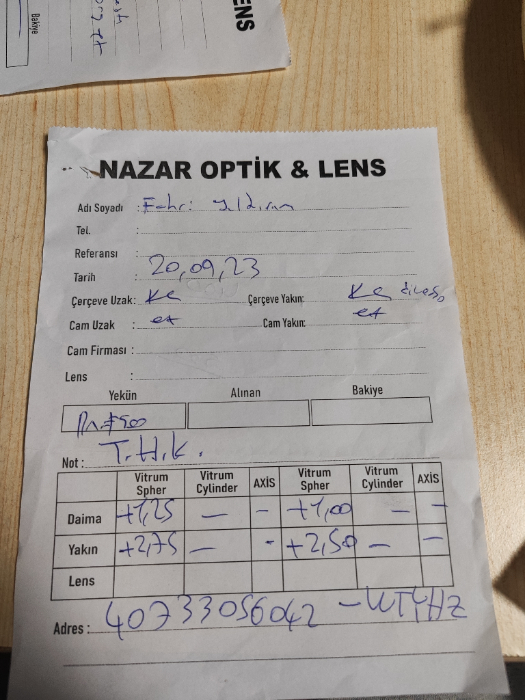 ENS
Bakiye
NAZAR OPTİK & LENS
Adı Soyadı : Fahri Yıldırım
Tel. :
Referansı :
Tarih : 20,09,23
Çerçeve Uzak: Ke Çerçeve Yakın: Ke
Cam Uzak : et Cam Yakın: et
Cam Firması :
Lens :
Yekün Alınan Bakiye
Not : T.H.K.
Vitrum Spher Vitrum Cylinder AXİS Vitrum Spher Vitrum Cylinder AXİS
Daima +1,25 — - +1,00 — —
Yakın +2,75 — - +2,50 — —
Lens
Adres : 40733056042